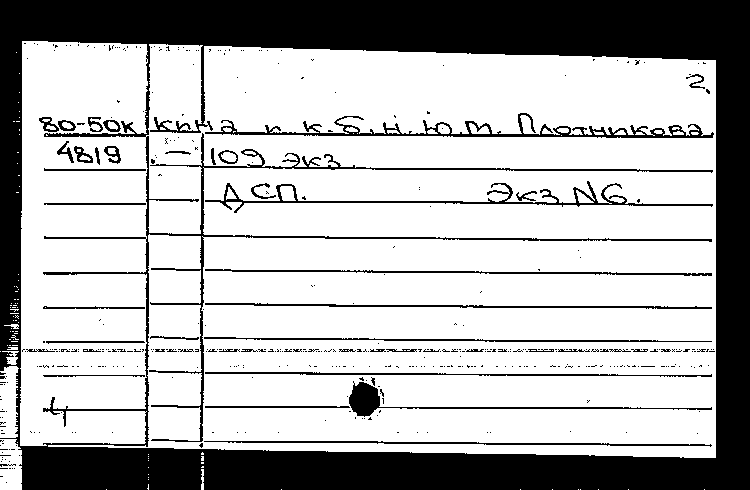 2.
80-50к кина и к.б.н. Ю.М. Плотникова
4819 .— 109 экз.
ДСП. Экз N6.
4